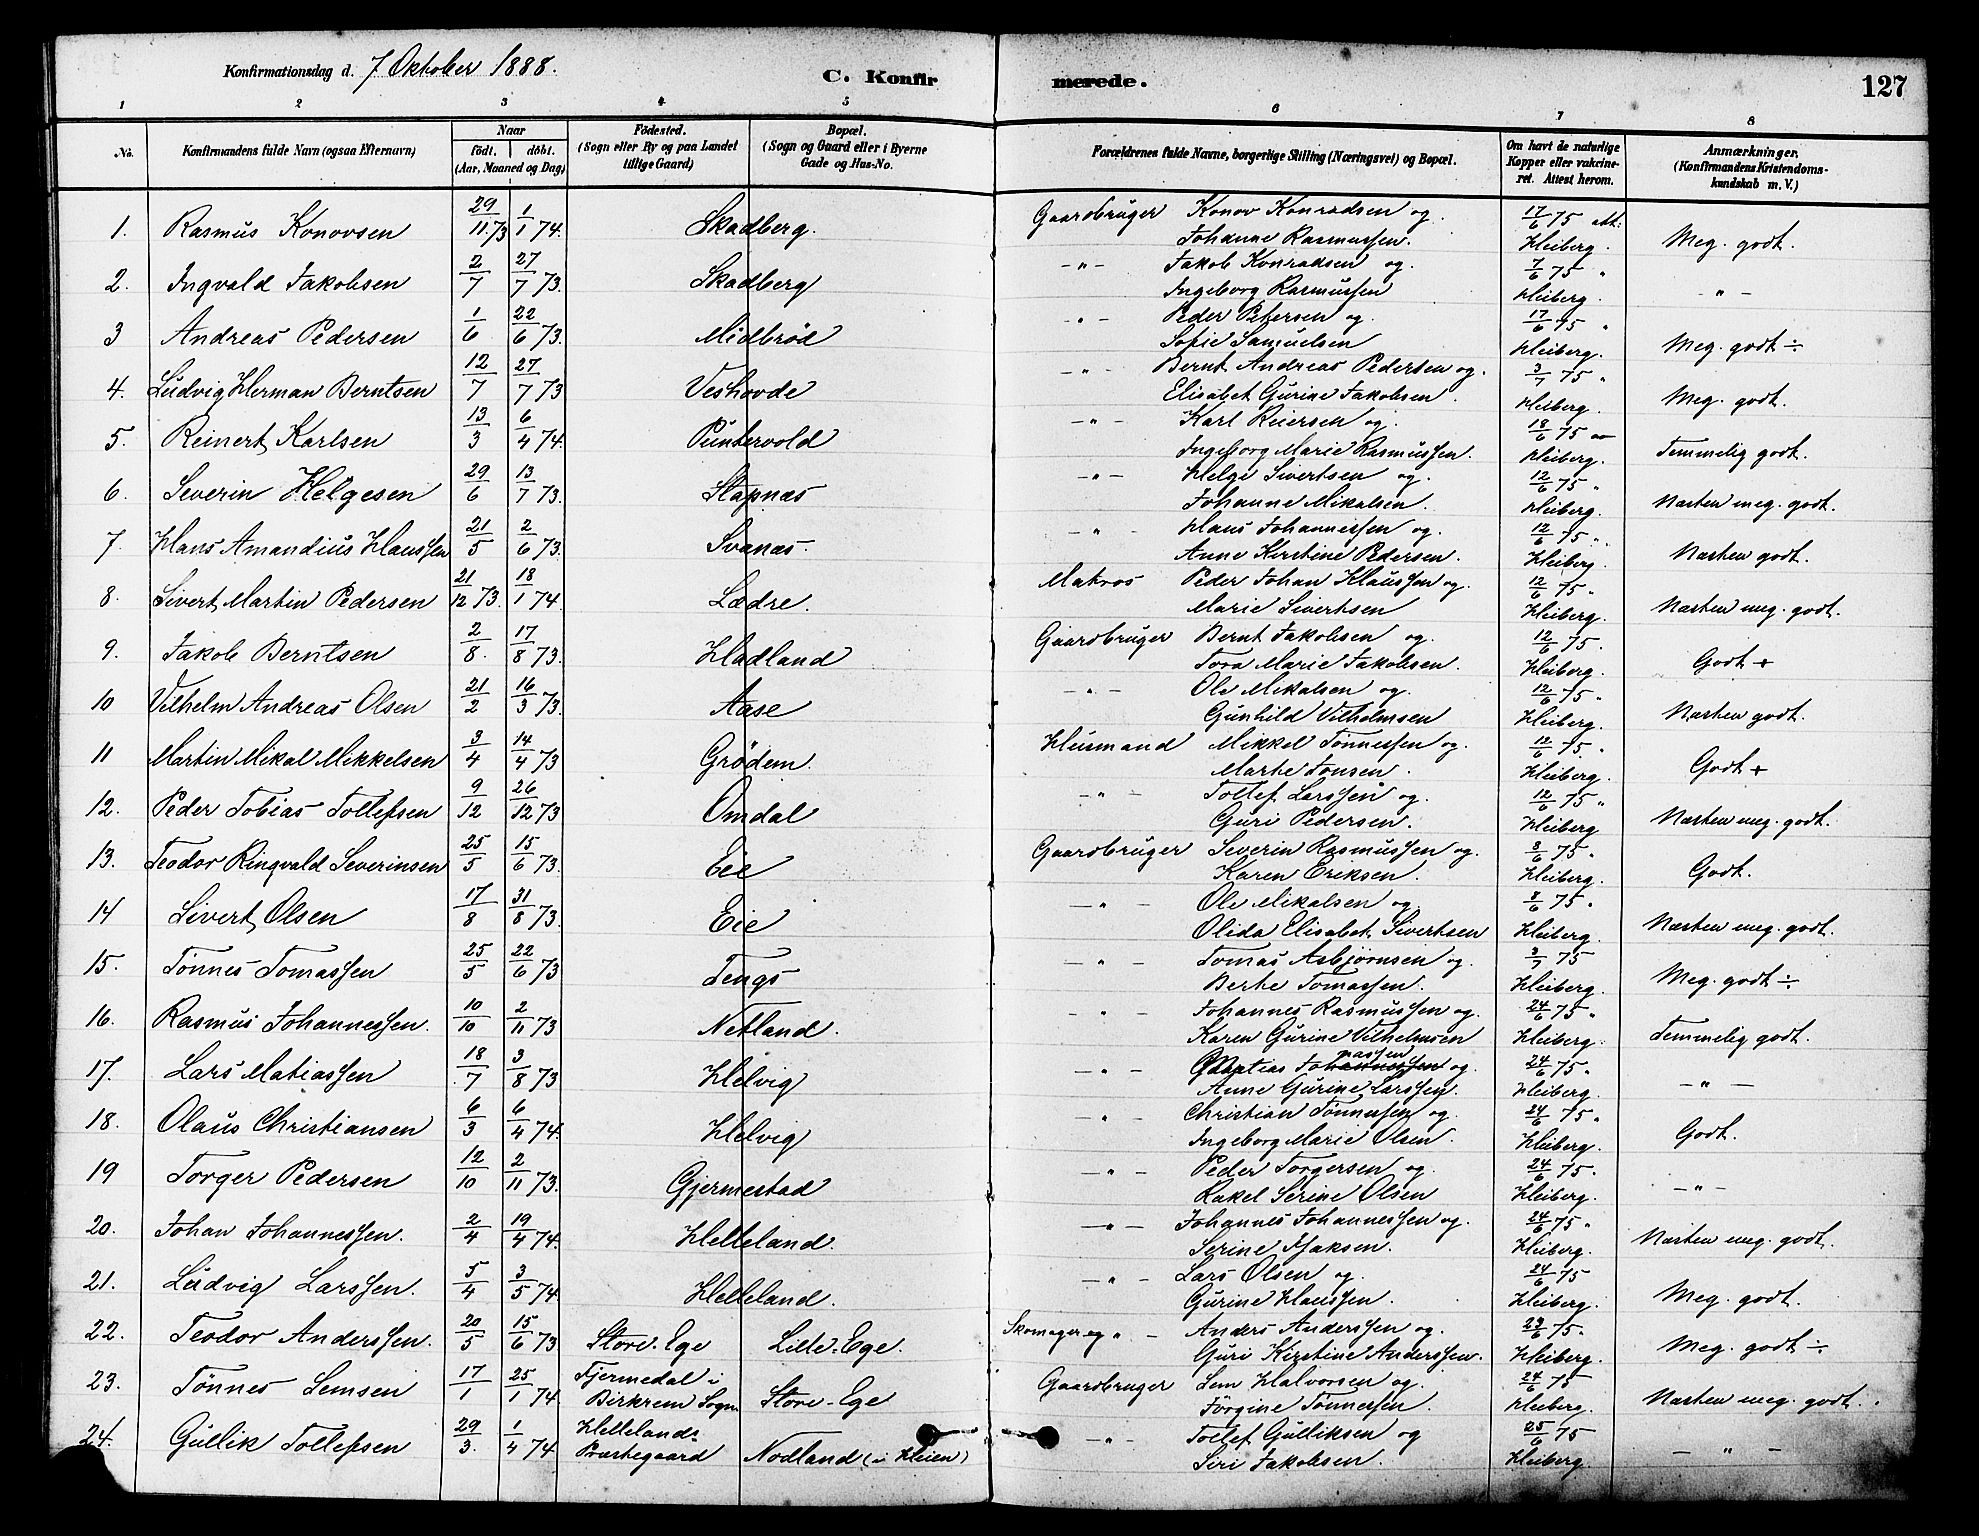 Konfirmationsdag d. 7 Oktober 1888.
C. Konfirmerede.
127
1 2 3 4 5 6 7 8
No.
Konfirmandens fulde Navn (ogsaa Efternavn)
Naar
födt. döbt.
(Aar, Maaned og Dag)
Födested.
(Sogn eller By og paa Landet
tillige Gaard)
Bopæl.
(Sogn og Gaard eller i Byerne
Gade og Hus-No.
Forældrenes fulde Navne, borgerlige Stilling (Næringsvei) og Bopæl.
Om havt de naturlige
Kopper eller vakcine-
ret. Attest herom.
Anmærkninger.
(Konfirmandens Kristendoms-
kundskab m. V.)
1. Rasmus Konovsen 29/11 73 1/1 74. Skadberg. Gaardbruger Konov Konradsen og 17/6 75 att.
Johanne Rasmussen. Heiberg. Meg. godt.
2. Ingvald Jakobsen 2/7 27/7 73. Skadberg -"- Jakob Konradsen og. 7/6 75 "
Ingeborg Rasmussen Heiberg. -"-
3 Andreas Pedersen 1/6 22/6 73. Midbrød -"- Peder Petersen og. 17/6 75 "
Sofie Samuelsen Heiberg. Meg. godt ÷
4. Ludvig Herman Berntsen 12/7 27/7 73 Veshovde -"- Bernt Andreas Pedersen og. 3/7 75 "
Elisabet Gurine Jakobsen. Heiberg. Meg. godt.
5. Reinert Karlsen 13/3 6/4 74. Puntervold -"- Karl Reiersen og. 18/6 75
Ingeborg Marie Rasmussen. Heiberg. Temmelig godt.
6. Severin Helgesen 29/6 13/7 73. Stapnæs -"- Helge Sivertsen og. 12/6 75 "
Johanne Mikalsen. Heiberg. Næsten meg. godt.
7. Hans Amandius Hanssen 21/5 2/6 73. Svanæs. -"- Hans Johannessen og. 12/6 75 "
Anne Kirstine Pedersen. Heiberg. Næsten godt.
8. Sivert Martin Pedersen 21/12 73. 18/1 74. Lædre. Matros Peder Johan Klaussen og. 12/6 75 "
Marie Sivertsen Heiberg. Næsten meg. godt.
9. Jakob Berntsen 2/8. 17/8 73. Hadland Gaardbruger Bernt Jakobsen og. 12/6 75.
Tora Marie Jakobsen. Heiberg. Godt +
10 Vilhelm Andreas Olsen 21/2 16/3 73. Aase -"- Ole Mikalsen og. 12/6 75 "
Gunhild Vilhelmsen Heiberg. Næsten godt.
11 Martin Mikal Mikkelsen 3/4 14/4 73 Grødem. Husmand Mikkel Tønnessen og. 12/6 75 "
Marte Jonsen. Heiberg. Godt +
12. Peder Tobias Tollefsen 9/12 26/12 73 Omdal -"- Tollef Larssen og. 12/6 75 "
Guri Pedersen. Heiberg Næsten meg. godt.
13. Teodor Ringvald Severinsen 25/5 15/6 73. Eie Gaardbruger Severin Rasmussen og. 8/6 75 "
Karen Eriksen. Heiberg. Godt.
14 Sivert Olsen 17/8 31/8 73. Eie -"- Ole Mikalsen og 8/6 75 "
Olida Elisabet Sivertsen Heiberg. Næsten meg. godt.
15. Tønnes Tomassen 25/5 22/6 73 Tengs -"- Tomas Asbjørnsen og. 3/7 75
Berte Tomassen. Heiberg. Meg. godt ÷
16. Rasmus Johannessen. 10/10 2/11 73 Netland. -"- Johannes Rasmussen og. 24/6 75 "
Karen Gurine Vilhelmsen Heiberg. Temmelig godt.
17. Lars Matiassen 18/7 3/8 73 Helvig -"- Matias Johannessen og. 24/6 75 "
Anne Gurine Larssen. Heiberg. -"-
18. Olaus Christiansen 6/3 6/4 74. Helvig -"- Christian Tønnessen og. 24/6 75 "
Ingeborg Marie Olsen. Heiberg. Godt.
19 Torger Pedersen 12/10 2/11 73. Gjermestad -"- Peder Torgersen og. 24/6 75 "
Rakel Serine Olsen Heiberg. -"-
20. Johan Johannessen. 2/4 19/4 74. Helleland. -"- Johannes Johannessen og. 24/6 75 "
Serine Isaksen. Heiberg. Næsten meg. godt.
21. Ludvig Larssen. 5/4 3/5 74 Helleland. -"- Lars Olsen og. 24/6 75
Gurine Hanssen. Heiberg. Meg. godt.
22. Teodor Anderssen. 20/5 15/6 73 Store-Ege Lille-Ege. Skomager og " - Anders Anderssen og. 23/6 75.
Guri Kirstine Anderssen. Heiberg. Meg. godt ÷
23. Tønnes Semsen 17/1 25/1 74. Tjermedal i
Birkrem Sogn Store-Ege Gaardbruger Sem Halvorsen og. 24/6 75
Jørgine Tønnessen. Heiberg. Næsten meg. godt.
24. Gullik Tollefsen 29/3. 1/4 74 Hellelands
Præstegaard Nodland (i Heien) -"- Tollef Gulliksen og 25/6 75
Siri Jakobsen. Heiberg. -"-